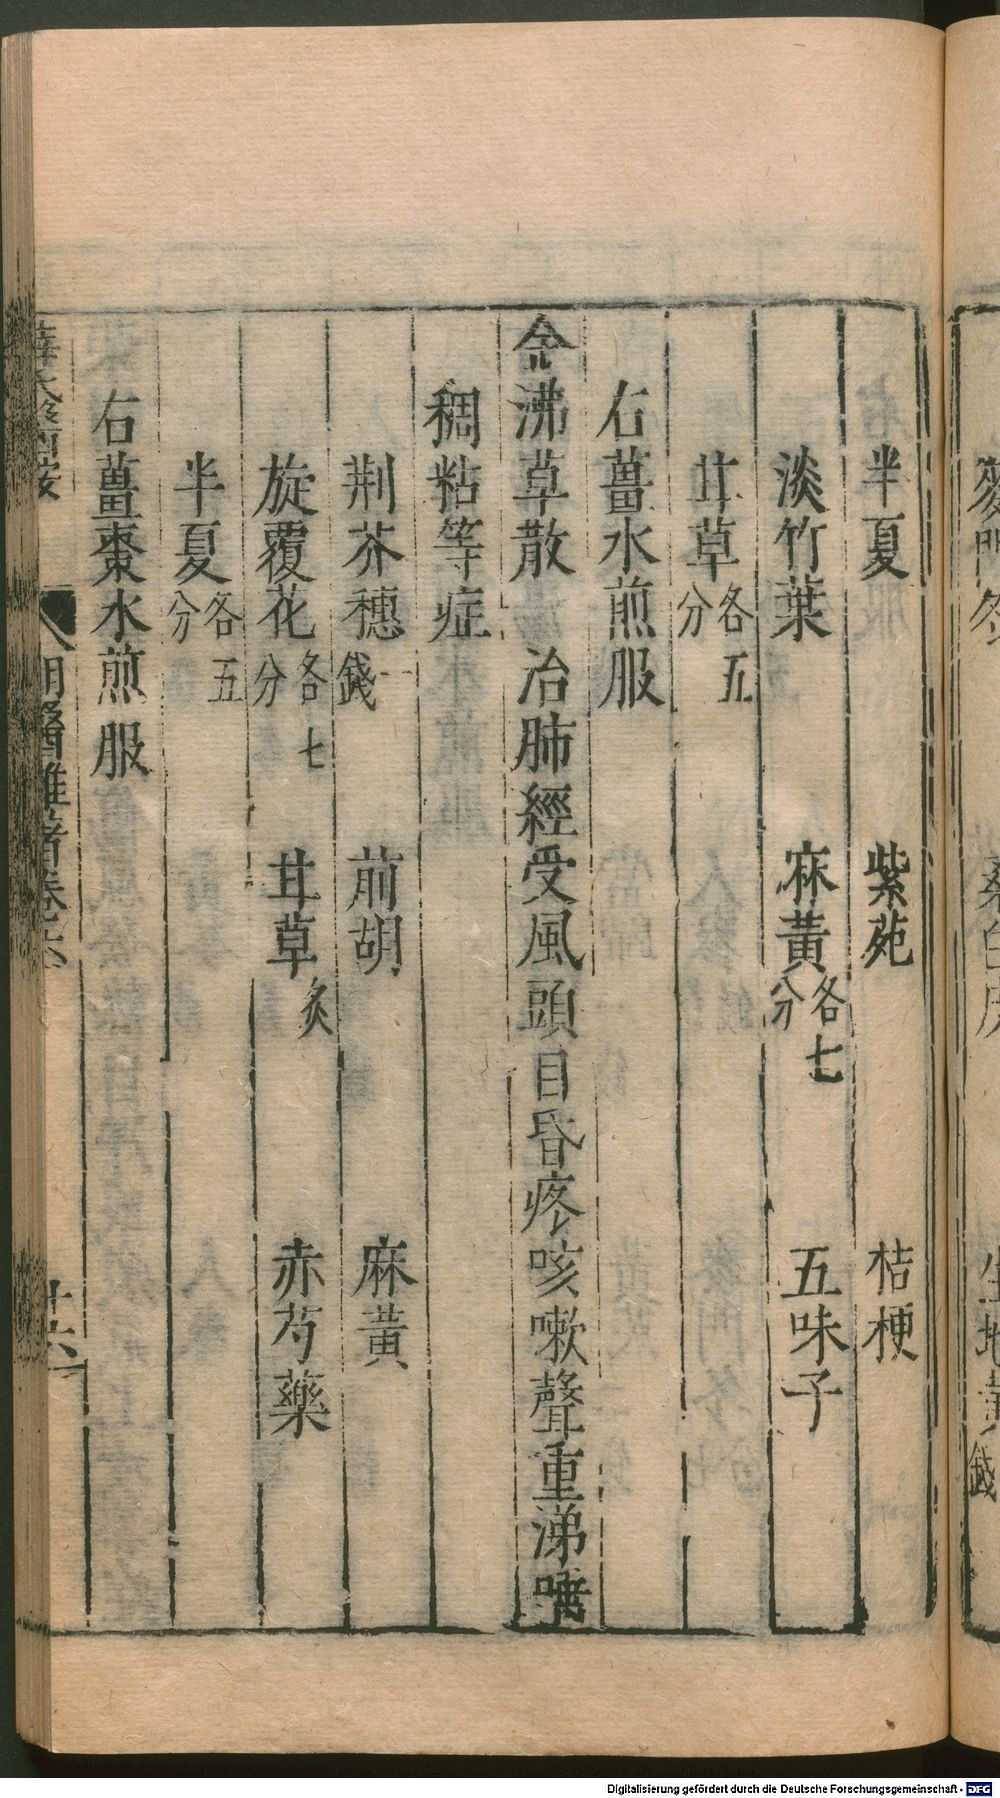 半夏 紫苑 桔梗
淡竹葉 麻黃各七分 五味子
甘草各五分
右薑水煎服
金沸草散 治肺經受風頭目昏疼咳嗽聲重涕唾
稠粘等症
荆芥穗錢 前胡 麻黃
旋覆花各七分 甘草炙 赤芍藥
半夏各五分
右薑棗水煎服
明醫雜著卷六
廿六
Digitalisierung gefördert durch die Deutsche Forschungsgemeinschaft - DFG